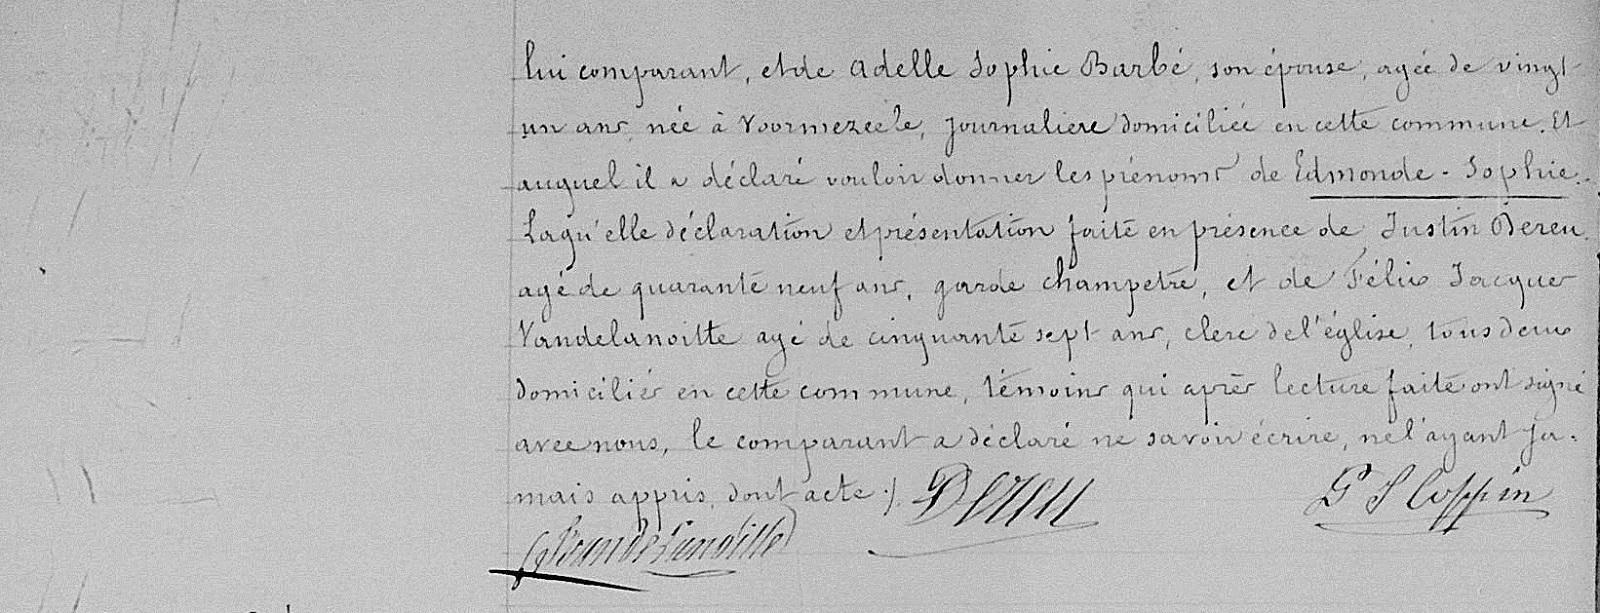 lui comparant, et de Adelle Sophie Barbé, son épouse, agée de vingt
un ans, née à Voormezeele, Journaliere domiciliée en cette commune. Et
auquel il a déclaré vouloir donner les prénoms de Edmonde - Sophie.
Laqu'elle déclaration et présentation faite en présence de Justin Dereu,
agé de quarante neuf ans, garde champetre, et de Félix Jacques
Vandelanoitte agé de cinquante sept ans, clerc de l'église, tous deux
domiciliés en cette commune, témoins qui après lecture faite ont signé
avec nous, le comparant a déclaré ne savoir écrire, ne l'ayant ja-
mais appris, dont acte ./. Dereu
Coppin
Vandelanoitte